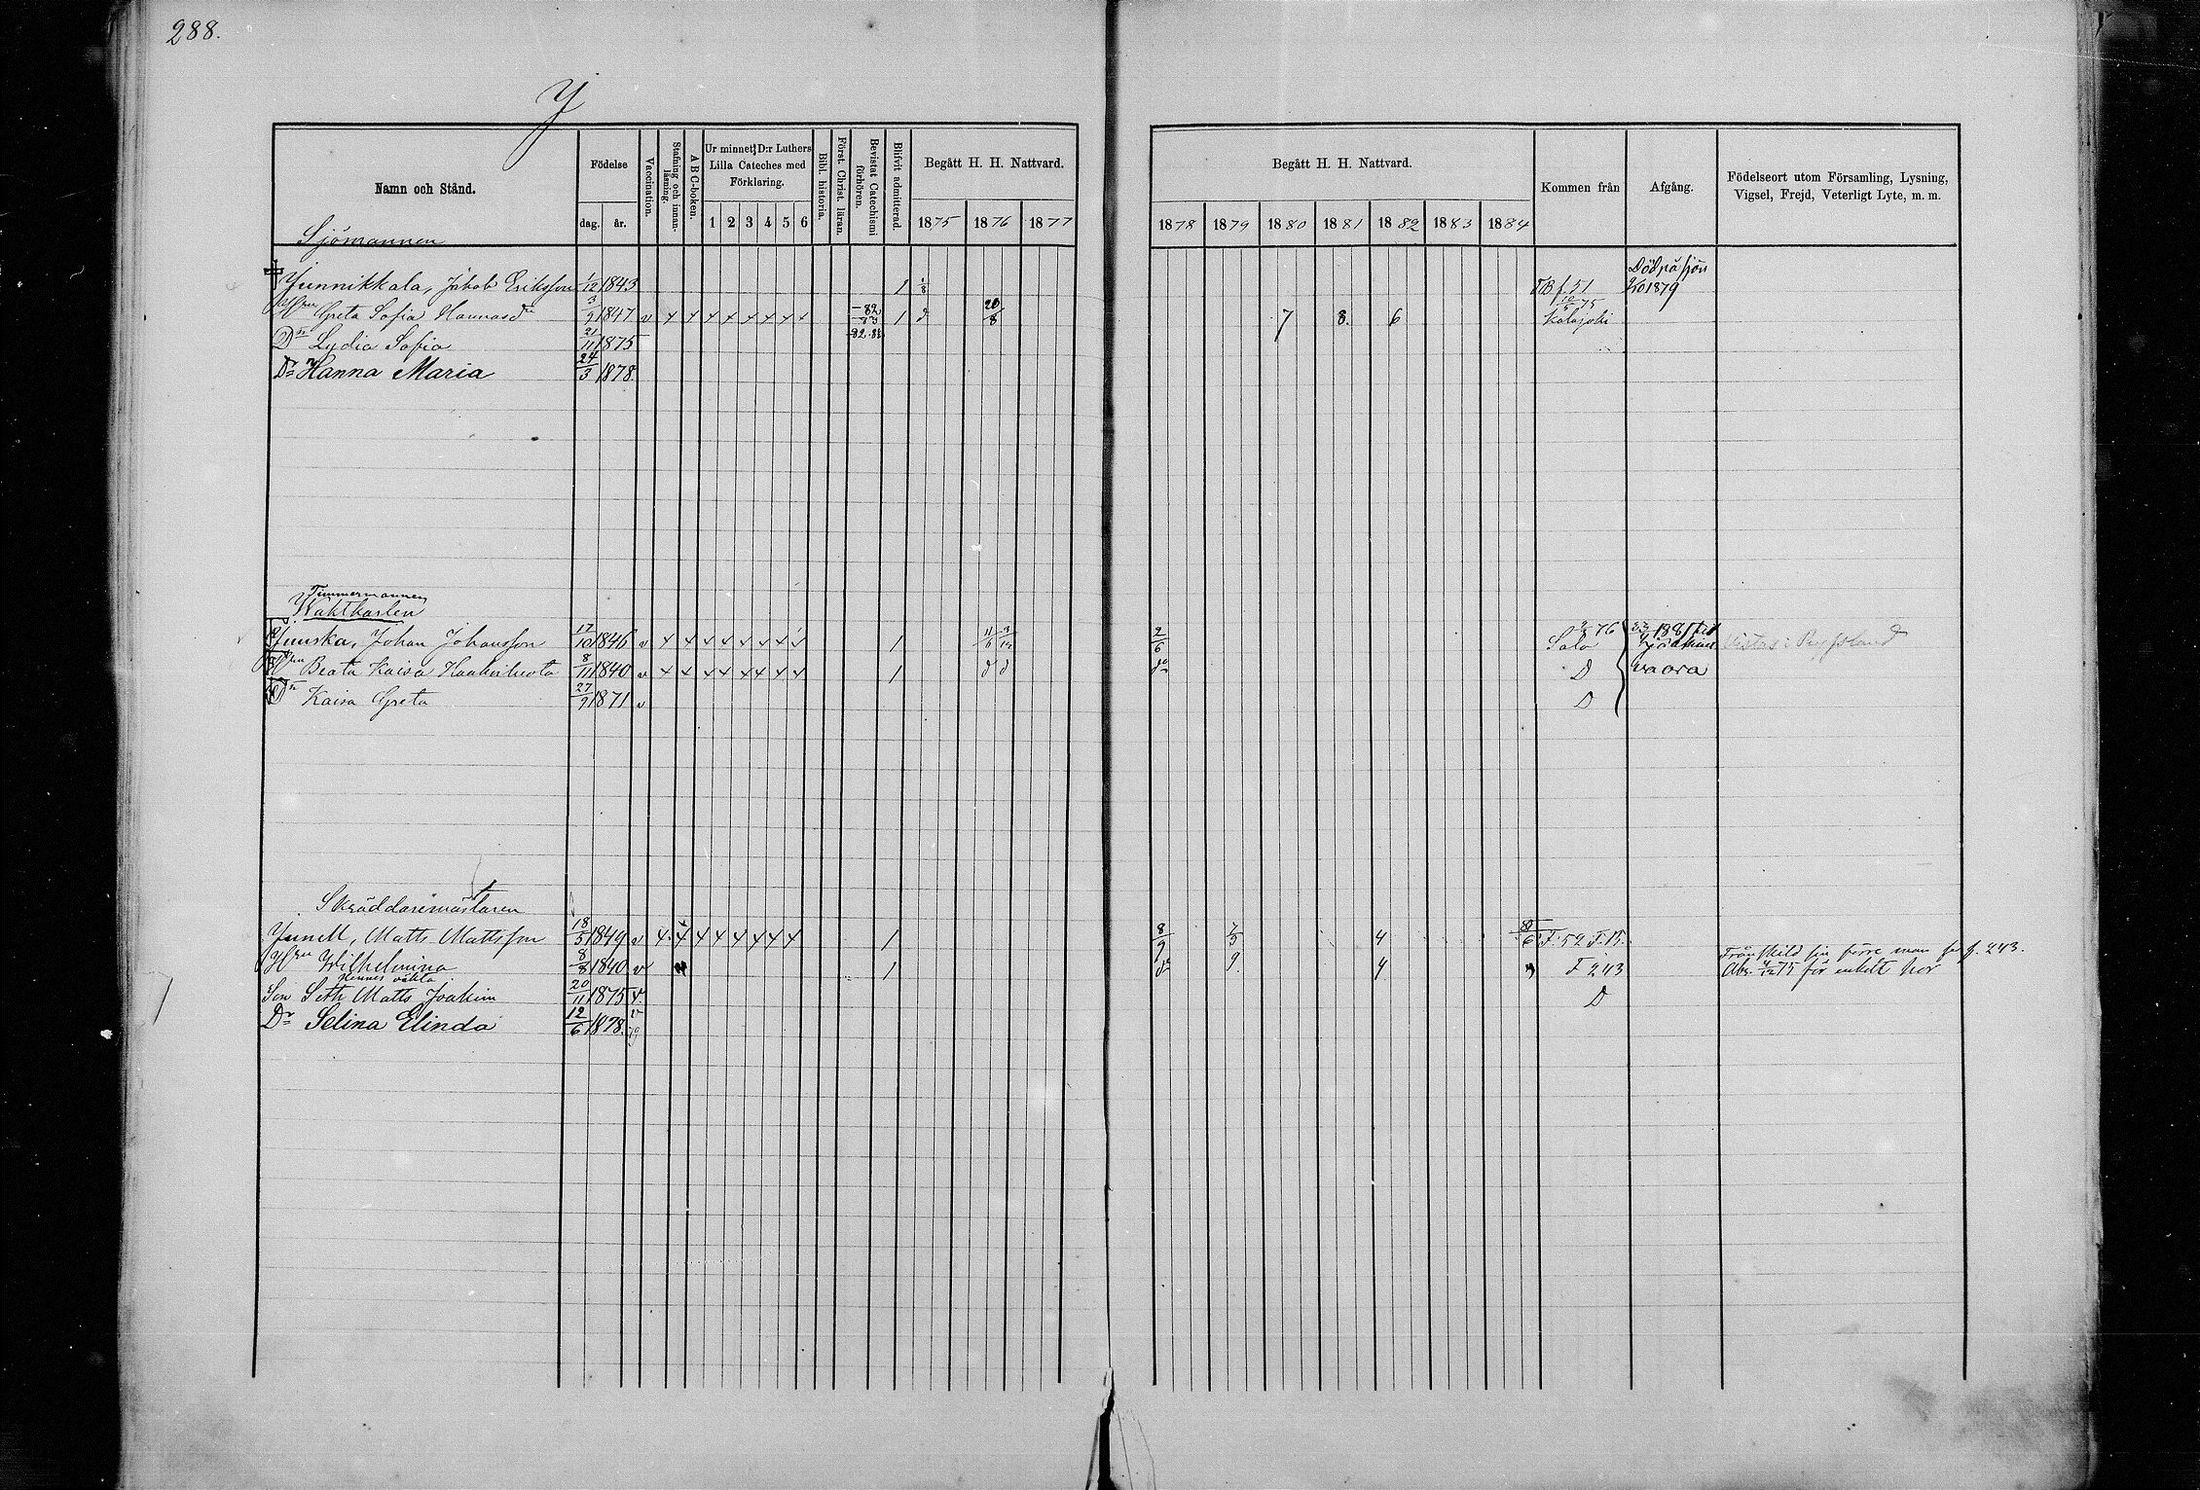 288.
Y
Namn och Stånd.
Födelse
dag. år.
Vaccination.
Stafning och innanläsning.
ABC-boken.
Ur minnet D:r Luthers
Lilla Cateches med
Förklaring.
1 2 3 4 5 6
Bibl. historia.
Först. Christ. läran.
Bevistat Catechismi förhören.
Blifvit admitterad.
Begått H. H. Nattvard.
1875 1876 1877
Begått H. H. Nattvard.
1878 1879 1880 1881 1882 1883 1884
Kommen från
Afgång.
Födelseort utom Församling, Lysning,
Vigsel, Frejd, Veterligt Lyte, m. m.
Sjömannen
Död på sjön
Ynnikkala, Jakob Eriksson 1/12 1843 1 TB f. 51 1879
Hru Greta Sofia Hannasdr 3/9 1847 v -82 -83 1 d 20/8 7 8. 6 75 Kalajoki
Dr Lydia Sofia 21/11 1875 82.
Dr Hanna Maria 24/3 1878.
Timmermannen
Waktkarlen
Johan Johansson 17/10 1846 v 1 2/6 76 Salo 1881 till
Hru Beata Kaisa 8/11 1840 v 1 d d do D vaara
Dr Kaisa Greta 27/9 1871 v D
Skräddaremästaren
Ynell, Matts Mattsson 18/5 1849 v 1 8/9 4 8/6 F. 52 F. 15.
Hru Wilhelmina 8/8 1840 v 1 do 9. 4 F 243 Frånskild sin förre man se f. 243.
Abs. 75 för enkelt hor
Hennes oäkta
Son Seth Matts Joakim 20/11 1875 v D
Dr Selina Elinda 12/6 1878. v 79